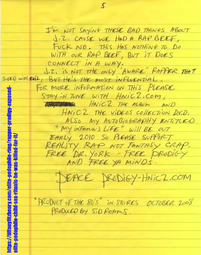 5
I'm not saying these bad things about
J.Z. cause we had a rap beef,
Fuck no. This has nothing to do
with our rap beef, but it does
connect in a way.
J.Z. is not the only "aware" rapper that
but he's the most influential.
For more information on this please
stay in tune with HNIC2.com,
HNIC2 the album and
HNIC2 the videos collection DVD.
Also my autobiography entitled
"My Infamous Life" will be out
early 2010 so please support
reality rap not fantasy crap.
Free Dr. York - Free Prodigy
and Free ya minds
Peace Prodigy-HNIC2.com
"Product of the 80's" in stores October 2008
produced by Sid Roams.